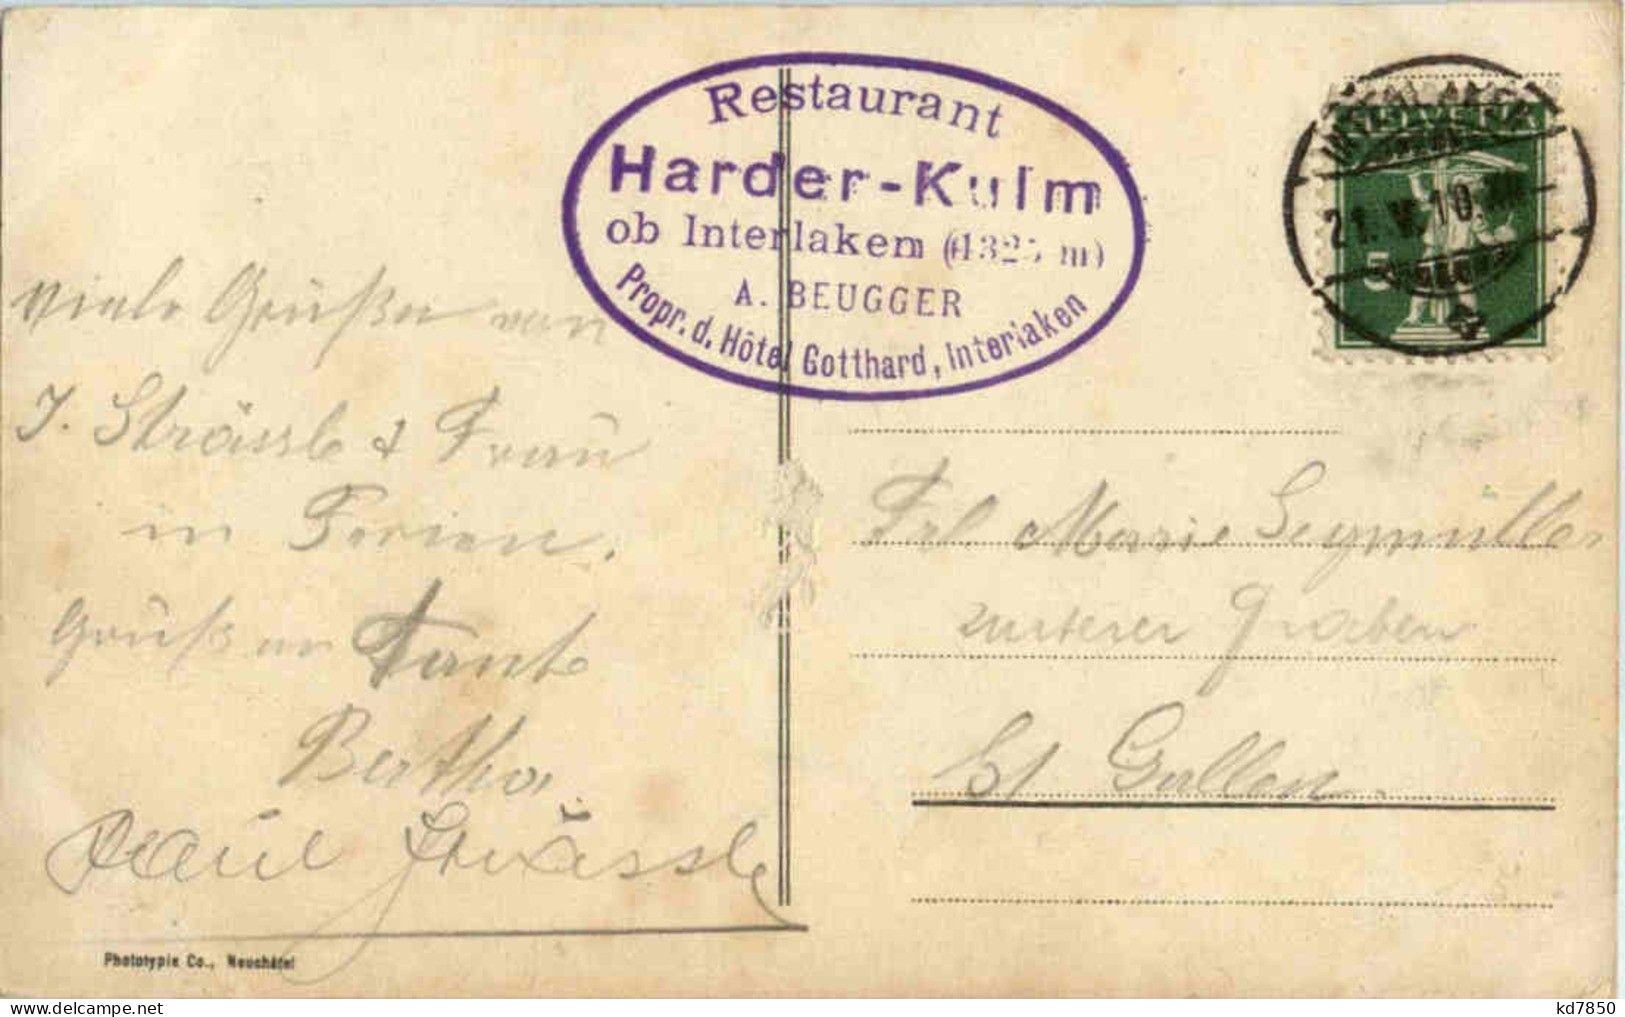 Restaurant
Harder-Kulm
ob Interlaken (1325 m)
A. BEUGGER
Propr. d. Hôtel Gotthard, Interlaken
INTERLAKEN
HELVETIA
21. V. 10.
5
Viele Grüße von
J. Strässle & Frau
in Ferien.
Gruß an Tante
Bertha
Paul Strässle
Frl Marie Seymüller
unterer Graben
St Gallen.
Phototypie Co., Neuchâtel
kd7850